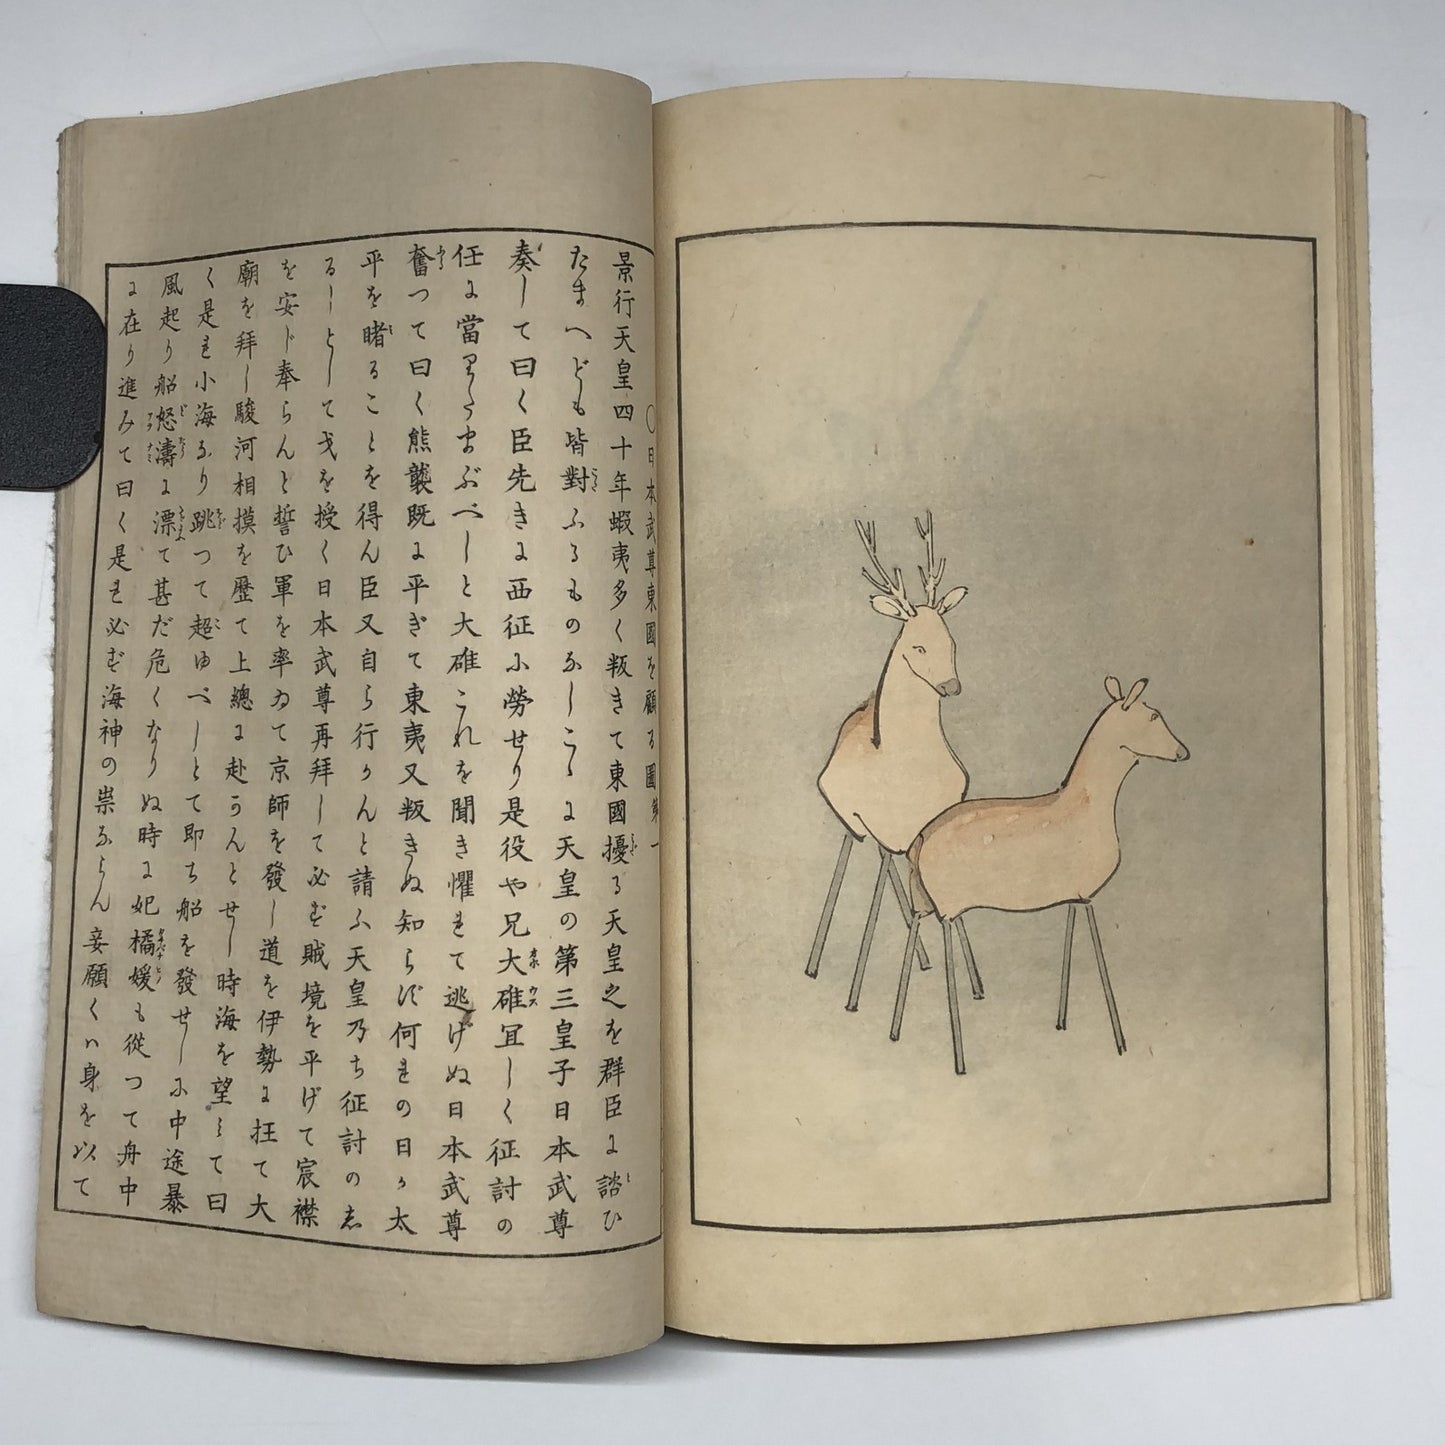 ○日本武尊東國を顧る圖第一
景行天皇四十年蝦夷多く叛きて東國擾る天皇之を群臣に諮ひ
たまへども皆對ふるものなしこゝに天皇の第三皇子日本武尊
奏して曰く臣先きに西征に勞せり是役や兄大碓宜しく征討の
任に當りたまふべしと大碓これを聞き懼れて逃げぬ日本武尊
奮つて曰く熊襲既に平ぎて東夷又叛きぬ知らず何れの日か太
平を睹ることを得ん臣又自ら行かんと請ふ天皇乃ち征討の志
るしとして戈を授く日本武尊再拜して必ず賊境を平げて宸襟
を安じ奉らんと誓ひ軍を率ゐて京師を發し道を伊勢に抂て大
廟を拜し駿河相摸を歴て上總に赴かんとせし時海を望みて曰
く是れ小海なり跳つて超ゆべしとて即ち船を發せしに中途暴
風起り船怒濤に漂て甚だ危くなりぬ時に妃橘媛も從つて舟中
に在り進みて曰く是れ必ず海神の祟ならん妾願くハ身を以て